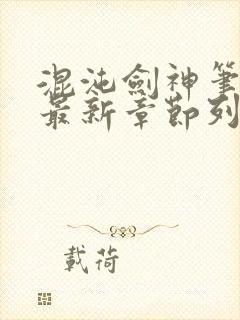 混沌劍神筆
最新章節列
載荷